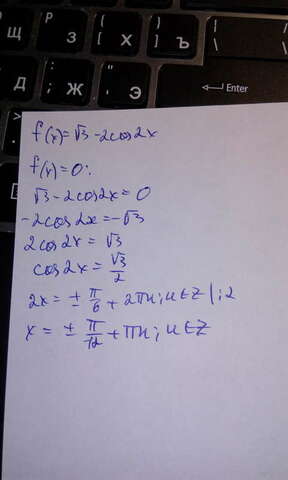 Щ
З
Х
Ъ
\
Д
Ж
Э
Enter
f(x)=√3-2cos2x
f(x)=0:
√3-2cos2x=0
-2cos2x=-√3
2cos2x=√3
cos2x=√3/2
2x=±π/6+2πn; n∈Z |:2
x=±π/12+πn; n∈Z